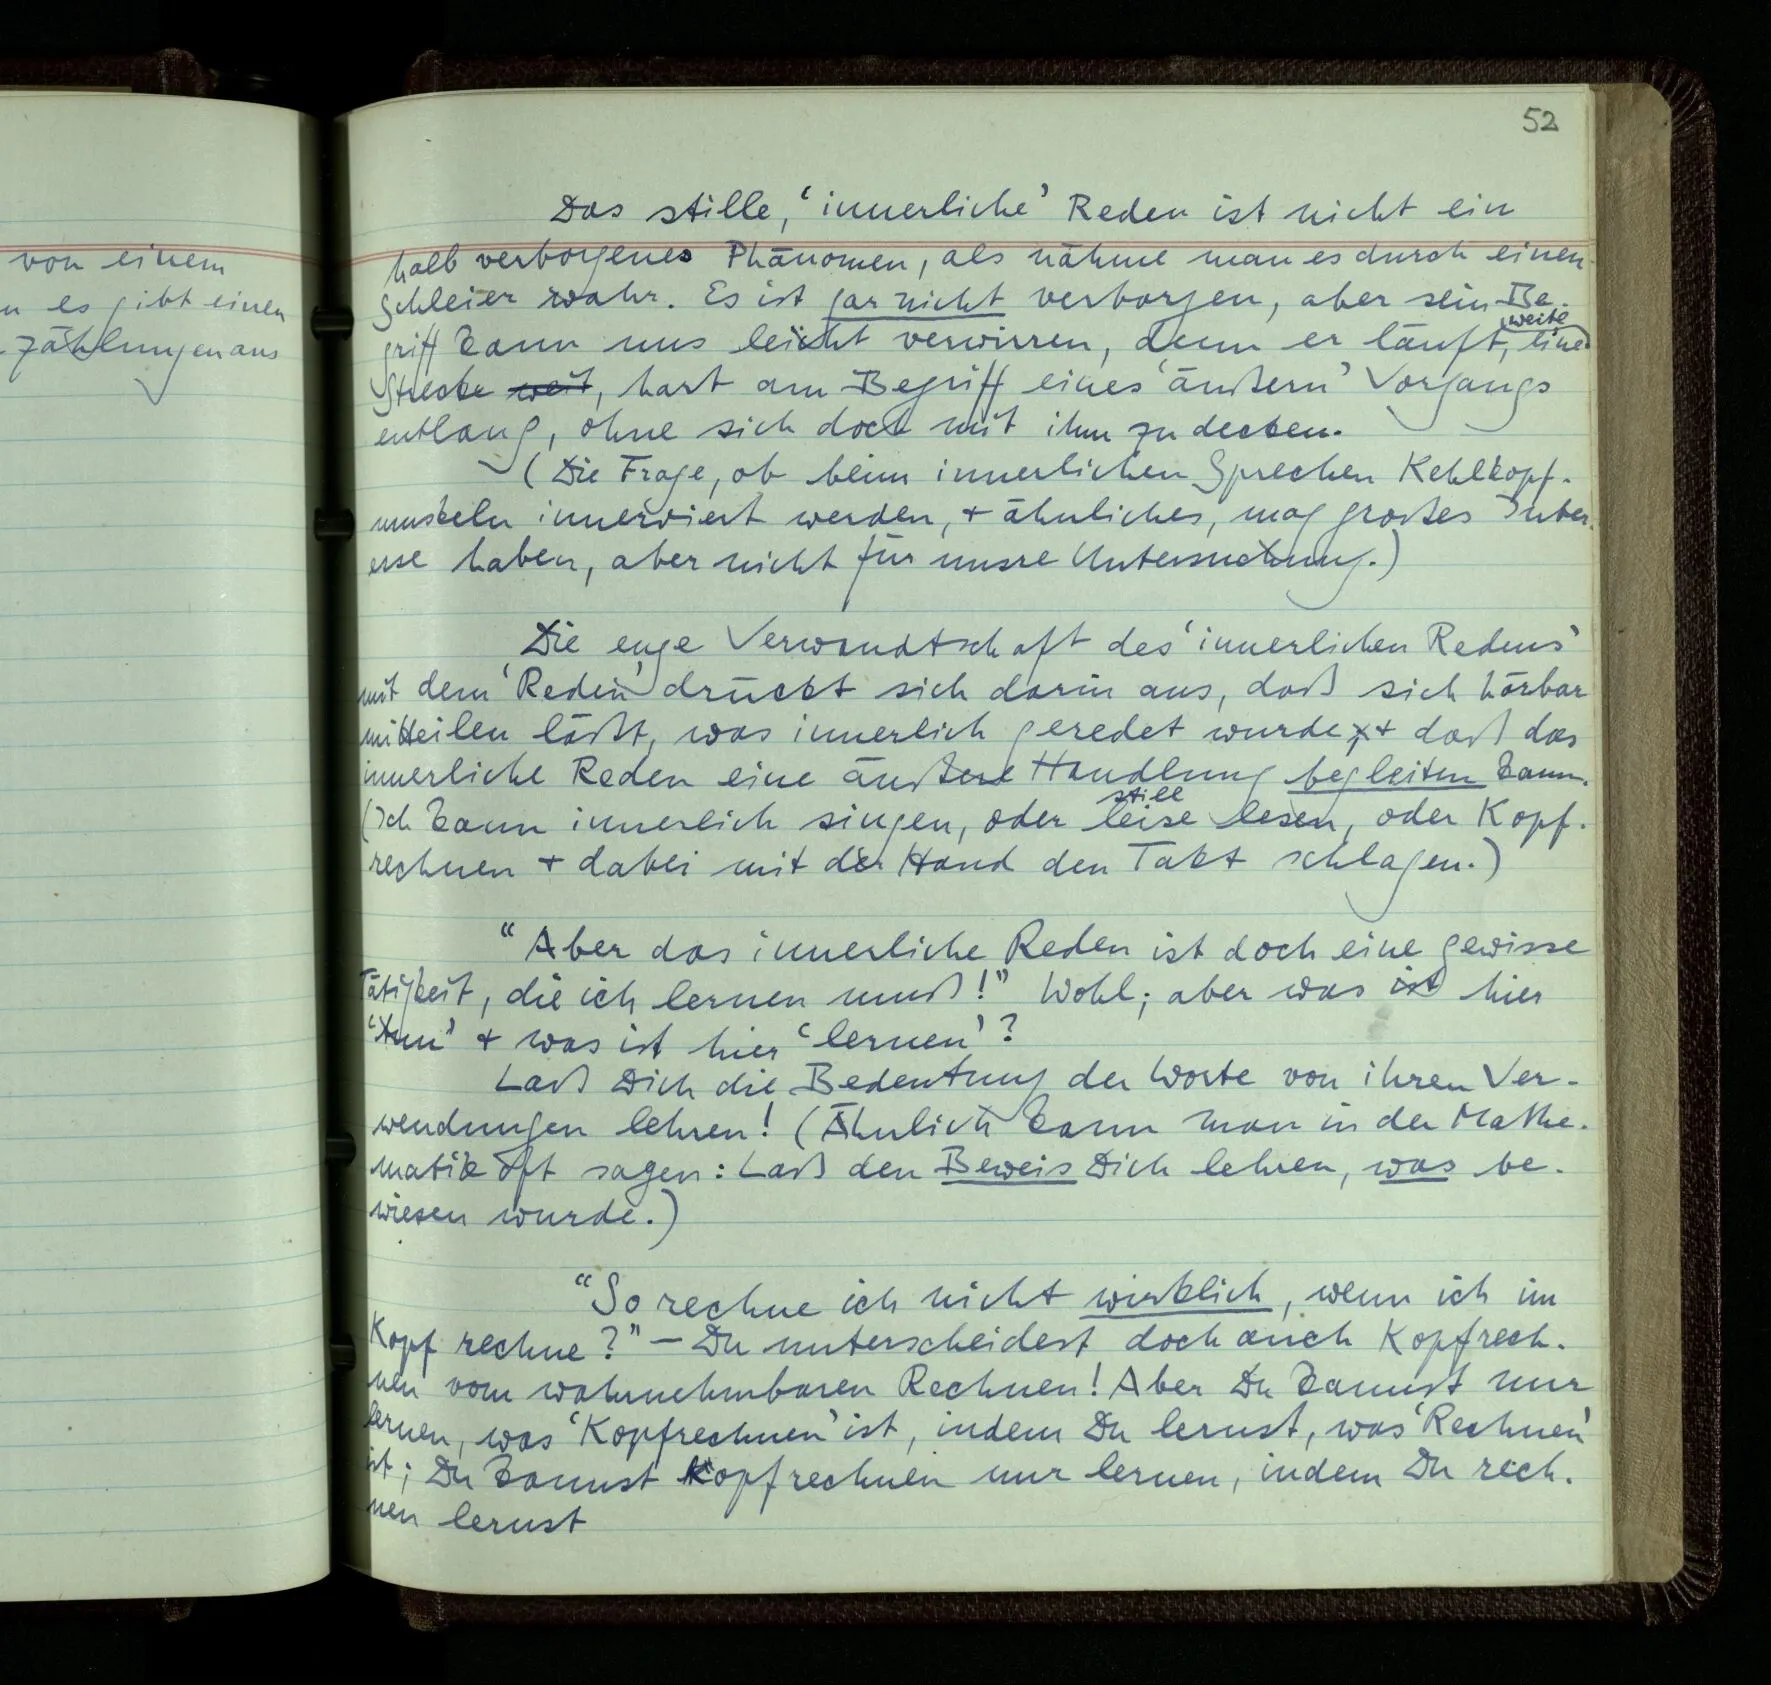 von einem
n es gibt einen
zählungen aus
52
Das stille, ‘innerliche’ Reden ist nicht ein
halb verborgenes Phänomen, als nähme man es durch einen
Schleier wahr. Es ist gar nicht verborgen, aber sein Be-
griff kann uns leicht verwirren, denn er läuft, weite eine
Strecke weit, hart am Begriff eines ‘äußern’ Vorgangs
entlang, ohne sich doch mit ihm zu decken.
(Die Frage, ob beim innerlichen Sprechen Kehlkopf-
muskeln innerviert werden, + ähnliches, mag großes Inter-
esse haben, aber nicht für unsre Untersuchung.)
Die enge Verwandtschaft des ‘innerlichen Redens’
mit dem ‘Reden’ drückt sich darin aus, daß sich hörbar
mitteilen läßt, was innerlich geredet wurde, + daß das
innerliche Reden eine äußere Handlung begleiten kann.
still
(Ich kann innerlich singen, oder leise lesen, oder Kopf-
rechnen + dabei mit der Hand den Takt schlagen.)
“Aber das innerliche Reden ist doch eine gewisse
Tätigkeit, die ich lernen muß!” Wohl; aber was ist hier
‘tun’ + was ist hier ‘lernen’?
Laß Dich die Bedeutung der Worte von ihren Ver-
wendungen lehren! (Ähnlich kann man in der Mathe-
matik oft sagen: Laß den Beweis Dich lehren, was be-
wiesen wurde.)
“So rechne ich nicht wirklich, wenn ich im
Kopf rechne?” – Du unterscheidest doch auch Kopfrech-
nen vom wahrnehmbaren Rechnen! Aber Du kannst nur
lernen, was ‘Kopfrechnen’ ist, indem Du lernst, was ‘Rechnen’
ist; Du kannst Kopfrechnen nur lernen, indem Du rech-
nen lernst